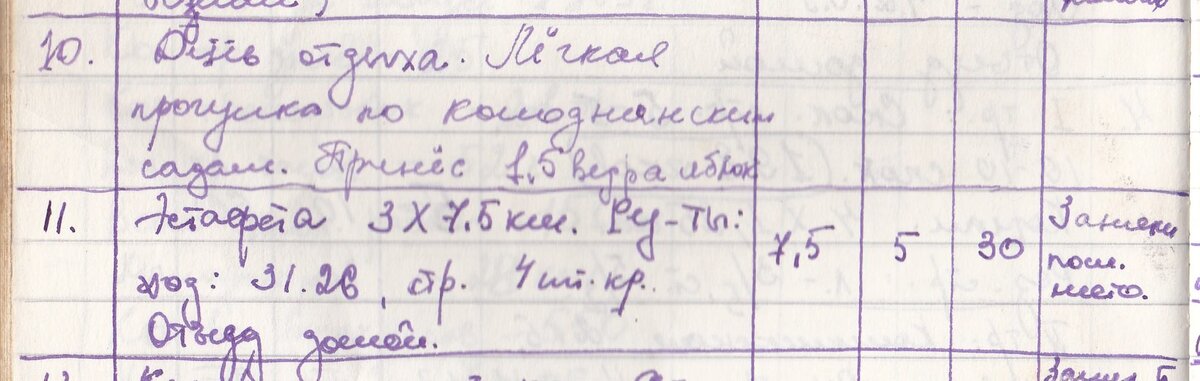 10. День отдыха. Лёгкая
прогулка по колоднянским
садам. Принёс 1,5 ведра яблок
11. Эстафета 3 X 7.5 км. Рез-ты: 7,5 5 30 Заняли
ход: 31.26, стр. 4 шт. кр. посл.
Отъезд домой. место.